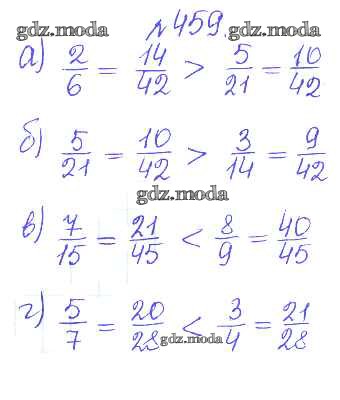 № 459.
gdz.moda gdz.moda
а) 2/6 = 14/42 > 5/21 = 10/42
б) 5/21 = 10/42 > 3/14 = 9/42
gdz.moda
в) 7/15 = 21/45 < 8/9 = 40/45
г) 5/7 = 20/28 < 3/4 = 21/28
gdz.moda